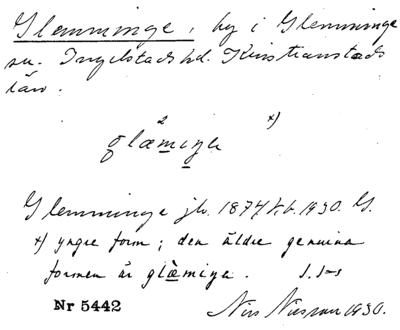 Glemminge, by i Glemminge
sn. Ingelstads hd. Kristianstads
län.
2 x)
glæmiŋə
Glemminge jb. 1874 k.b. 1930. G.
x) yngre form; den äldre genuina
formen är glæ̀miŋa. I. I-s
Nr 5442 Nils Nilsson 1930.